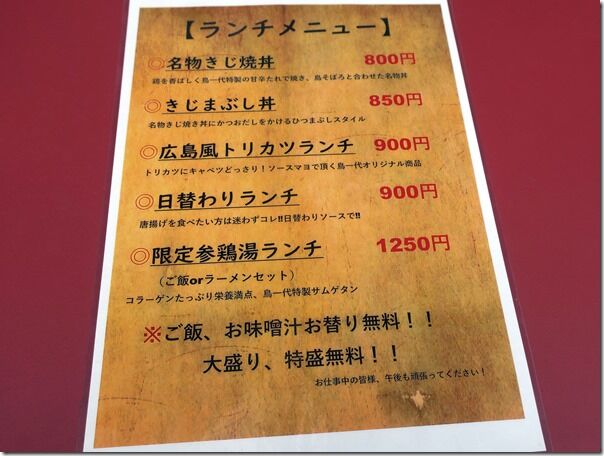 【ランチメニュー】
◎名物きじ焼丼 800円
鶏を香ばしく鳥一代特製の甘辛たれで焼き、鳥そぼろと合わせた名物丼
◎きじまぶし丼 850円
名物きじ焼き丼にかつおだしをかけるひつまぶしスタイル
◎広島風トリカツランチ 900円
トリカツにキャベツどっさり！ソースマヨで頂く鳥一代オリジナル商品
◎日替わりランチ 900円
唐揚げを食べたい方は迷わずコレ!!日替わりソースで!!
◎限定参鶏湯ランチ 1250円
（ご飯orラーメンセット）
コラーゲンたっぷり栄養満点、鳥一代特製サムゲタン
※ご飯、お味噌汁お替り無料！！
大盛り、特盛無料！！
お仕事中の皆様、午後も頑張ってください！